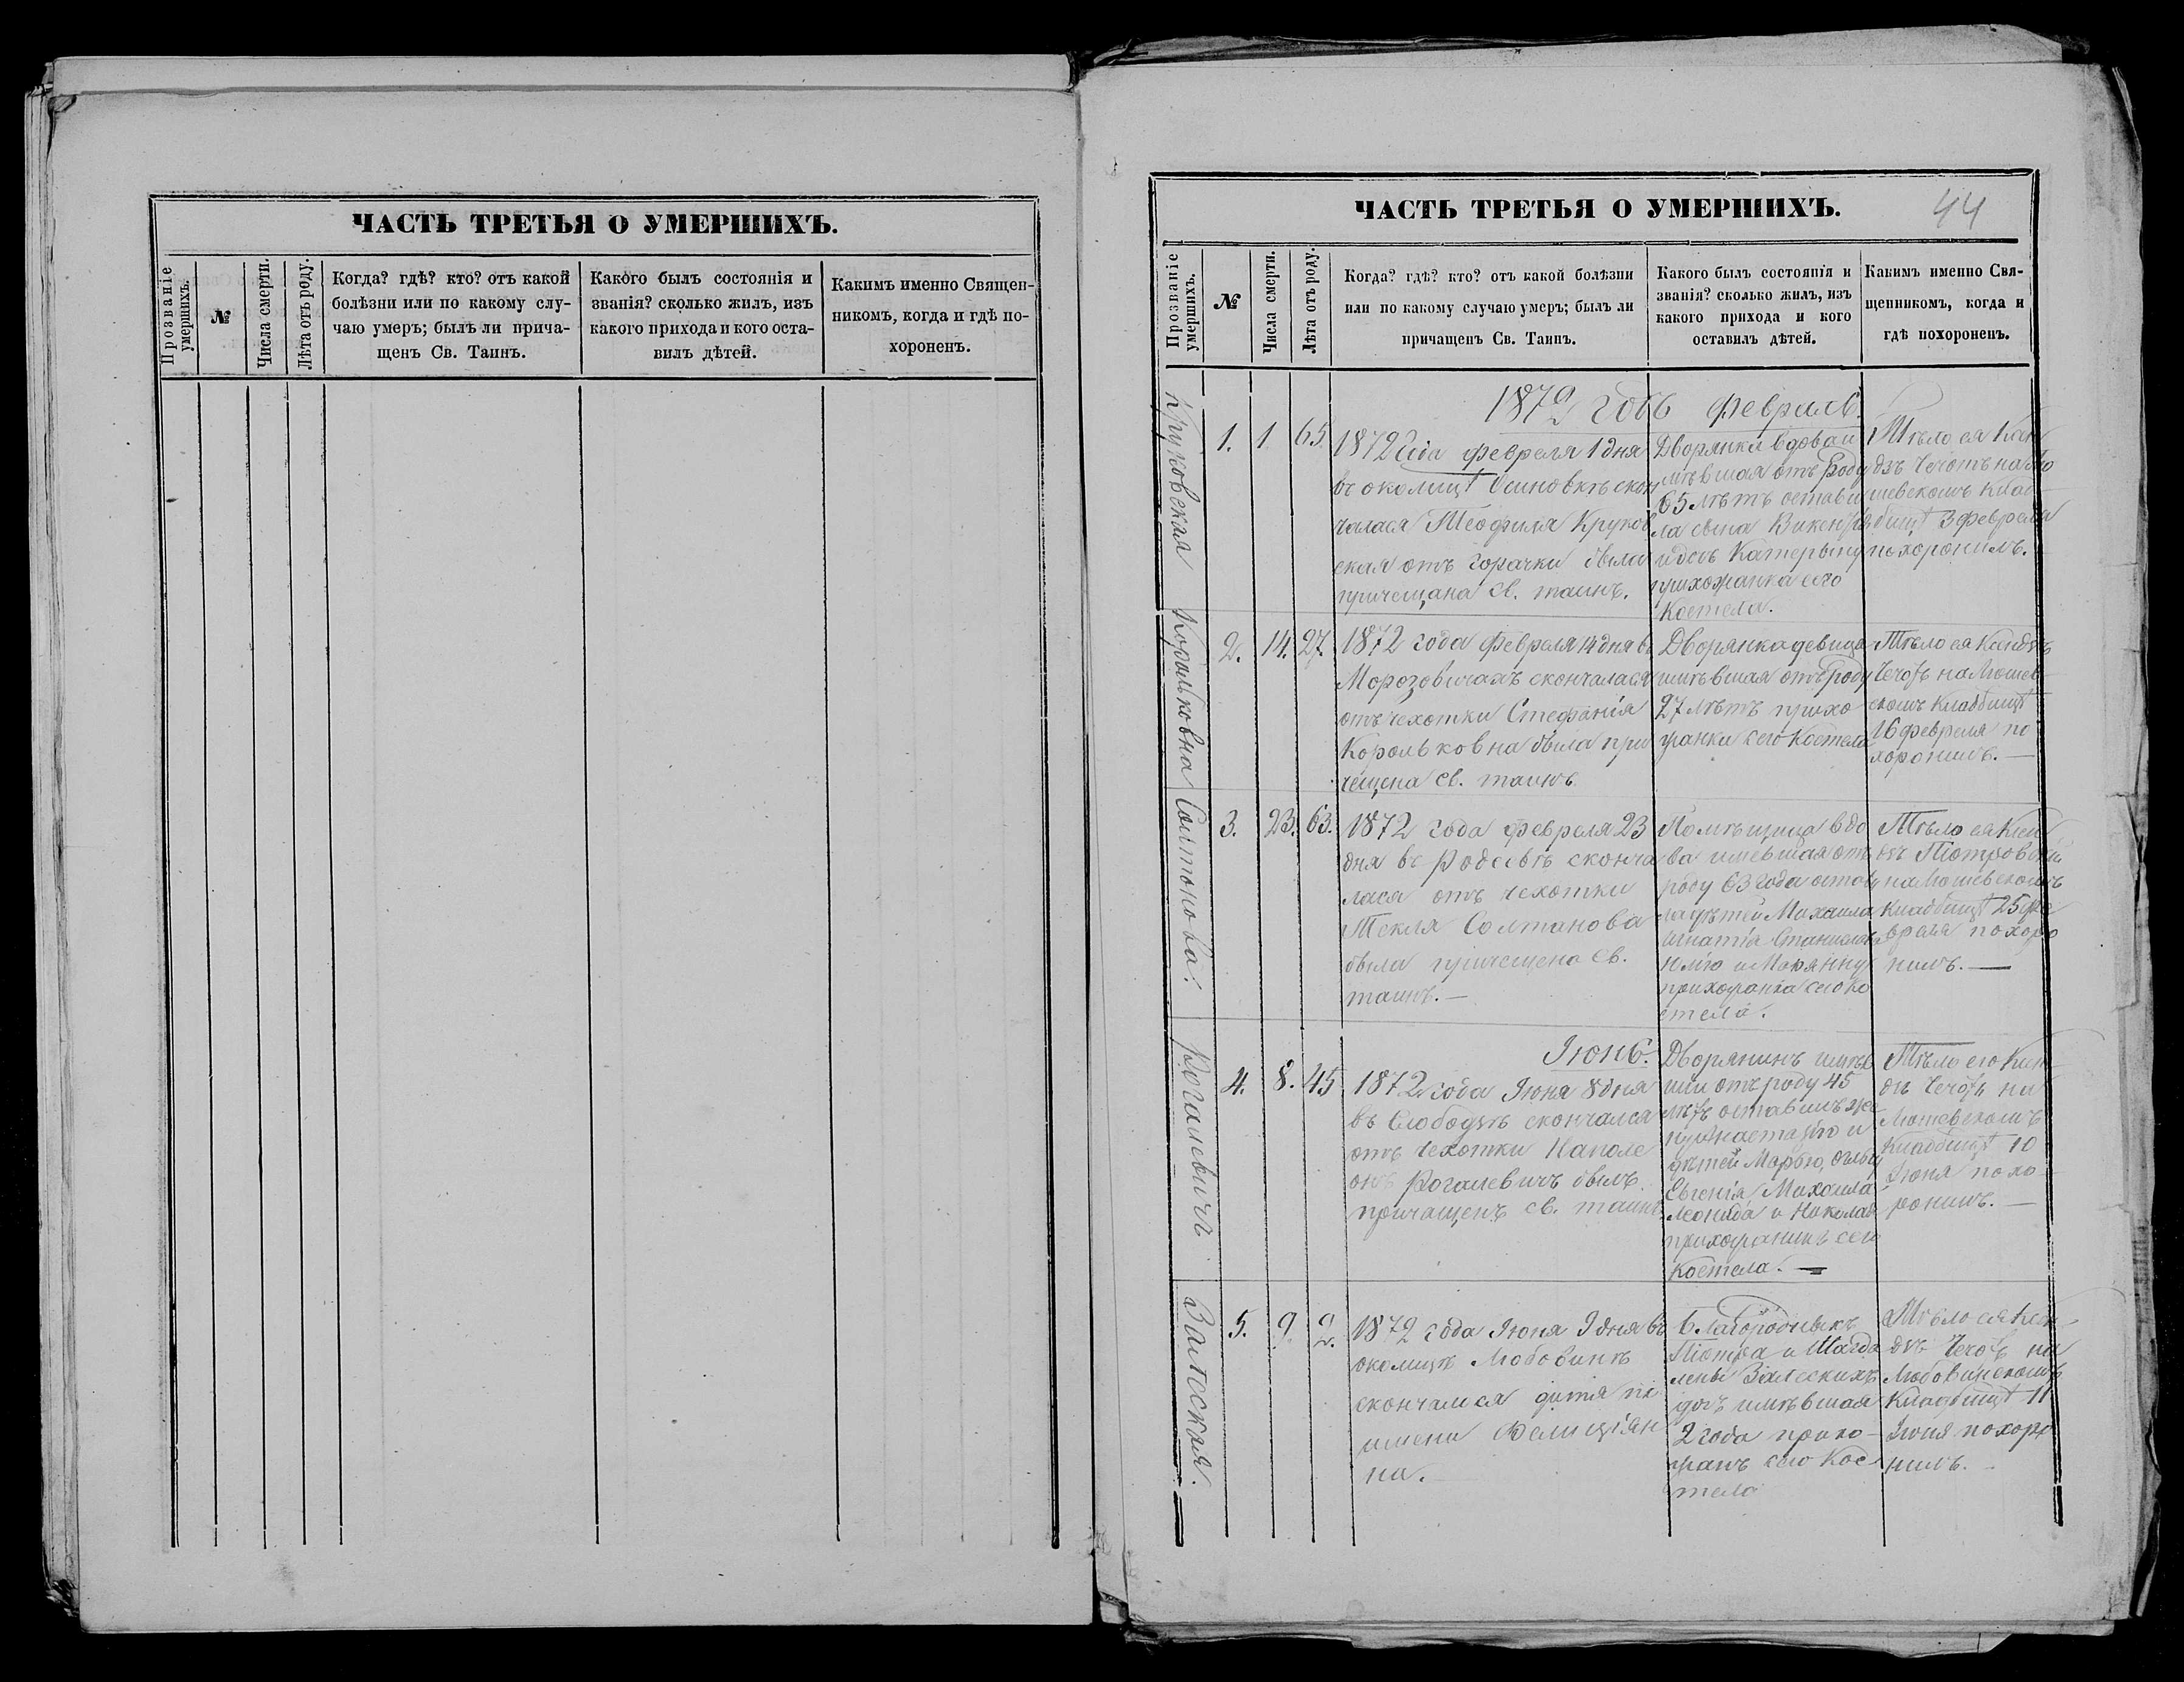 ЧАСТЬ ТРЕТЬЯ О УМЕРШИХЪ.
Прозваніе умершихъ.
№
Числа смерти.
Лѣта отъ роду.
Когда? гдѣ? кто? отъ какой
болѣзни или по какому слу-
чаю умеръ; былъ ли прича-
щенъ Св. Таинъ.
Какого былъ состоянія и
званія? сколько жилъ, изъ
какого прихода и кого оста-
вилъ дѣтей.
Каким именно Священ-
никомъ, когда и гдѣ по-
хороненъ.
ЧАСТЬ ТРЕТЬЯ О УМЕРШИХЪ.
44
Прозваніе умершихъ.
№
Числа смерти.
Лѣта отъ роду.
Когда? гдѣ? кто? отъ какой болѣзни
или по какому случаю умеръ; былъ ли
причащенъ Св. Таинъ.
Какого былъ состоянія и
званія? сколько жилъ, изъ
какого прихода и кого
оставилъ дѣтей.
Какимъ именно Свя-
щенникомъ, когда и
гдѣ похороненъ.
1872 годъ февраль.
Круковская
1. 1 65
1872 года февраля 1 дня
въ околицѣ Осиновкѣ скон
чалася Теофиля Круков
ская отъ горачки была
причещана Св. таинъ.
Дворянка вдова и
мѣвшая отъ роду
65 лѣтъ остави
ла сына Викентія
и дочь Катерыну
прихожанка сего
Костела.
Тѣло ея Ксен
дзъ Чечотъ на
шевскомъ клад
бищѣ 3 февраля
похоронилъ.
Корольковна
2. 14. 27
1872 года февраля 14 дня въ
Морозовичахъ скончалася
отъ чехотки Стефанія
Корольковна была при
чещена Св. таинъ
Дворянка девица
имѣвшая отъ роду
27 лѣтъ прихо
жанка сего Костела
Тѣло ея Ксендзъ
Чечотъ на Люшев
скомъ кладбищѣ
16 февраля по
хоронилъ. —
Солтанова.
3. 23. 63.
1872 года февраля 23
дня въ Родеевѣ сконча
лася отъ чехотки
Текля Солтанова
была причещена Св.
таинъ. —
Помѣщица вдо
ва имевшая отъ
роду 63 года остави
ла дѣтей Михаила
Игнатія Станислава
Юлію и Маріянну
прихожанка сего ко
стела.
Тѣло ея Ксен
дзъ Піотровскій
на Люшевскомъ
кладбищѣ 25 фе
враля похоро
нилъ. —
Рогалевичъ
Іюнь.
4. 8. 45
1872 года Іюня 8 дня
въ Слободѣ скончался
отъ чехотки Наполе
онъ Рогалевичъ былъ
причащенъ св. таинъ.
Дворянинъ имѣв
ши отъ роду 45
лѣтъ оставилъ же
ну Анастазію и
дѣтей Марью, Ольгу
Евгенія, Михаила
Леонида и Николая
прихожанинъ сего
Костела. —
Тѣло его Ксен
дзъ Чечотъ на
Люшевскомъ
Кладбищѣ 10
Іюня похо
ронилъ. —
Залеская.
5. 9. 2.
1872 года Іюня 9 дня въ
околицѣ Любовинѣ
скончалися дитя по
имени Фелиціян
на. —
Благородныхъ
Піотра и Магда
лены Залескихъ
дочь имѣвшая
2 года прихо-
жанъ сего Кос
тела
Тѣло ея Ксен
дзъ Чечотъ на
Любовинскомъ
Кладбищѣ 11
Іюня похоро
нилъ. —